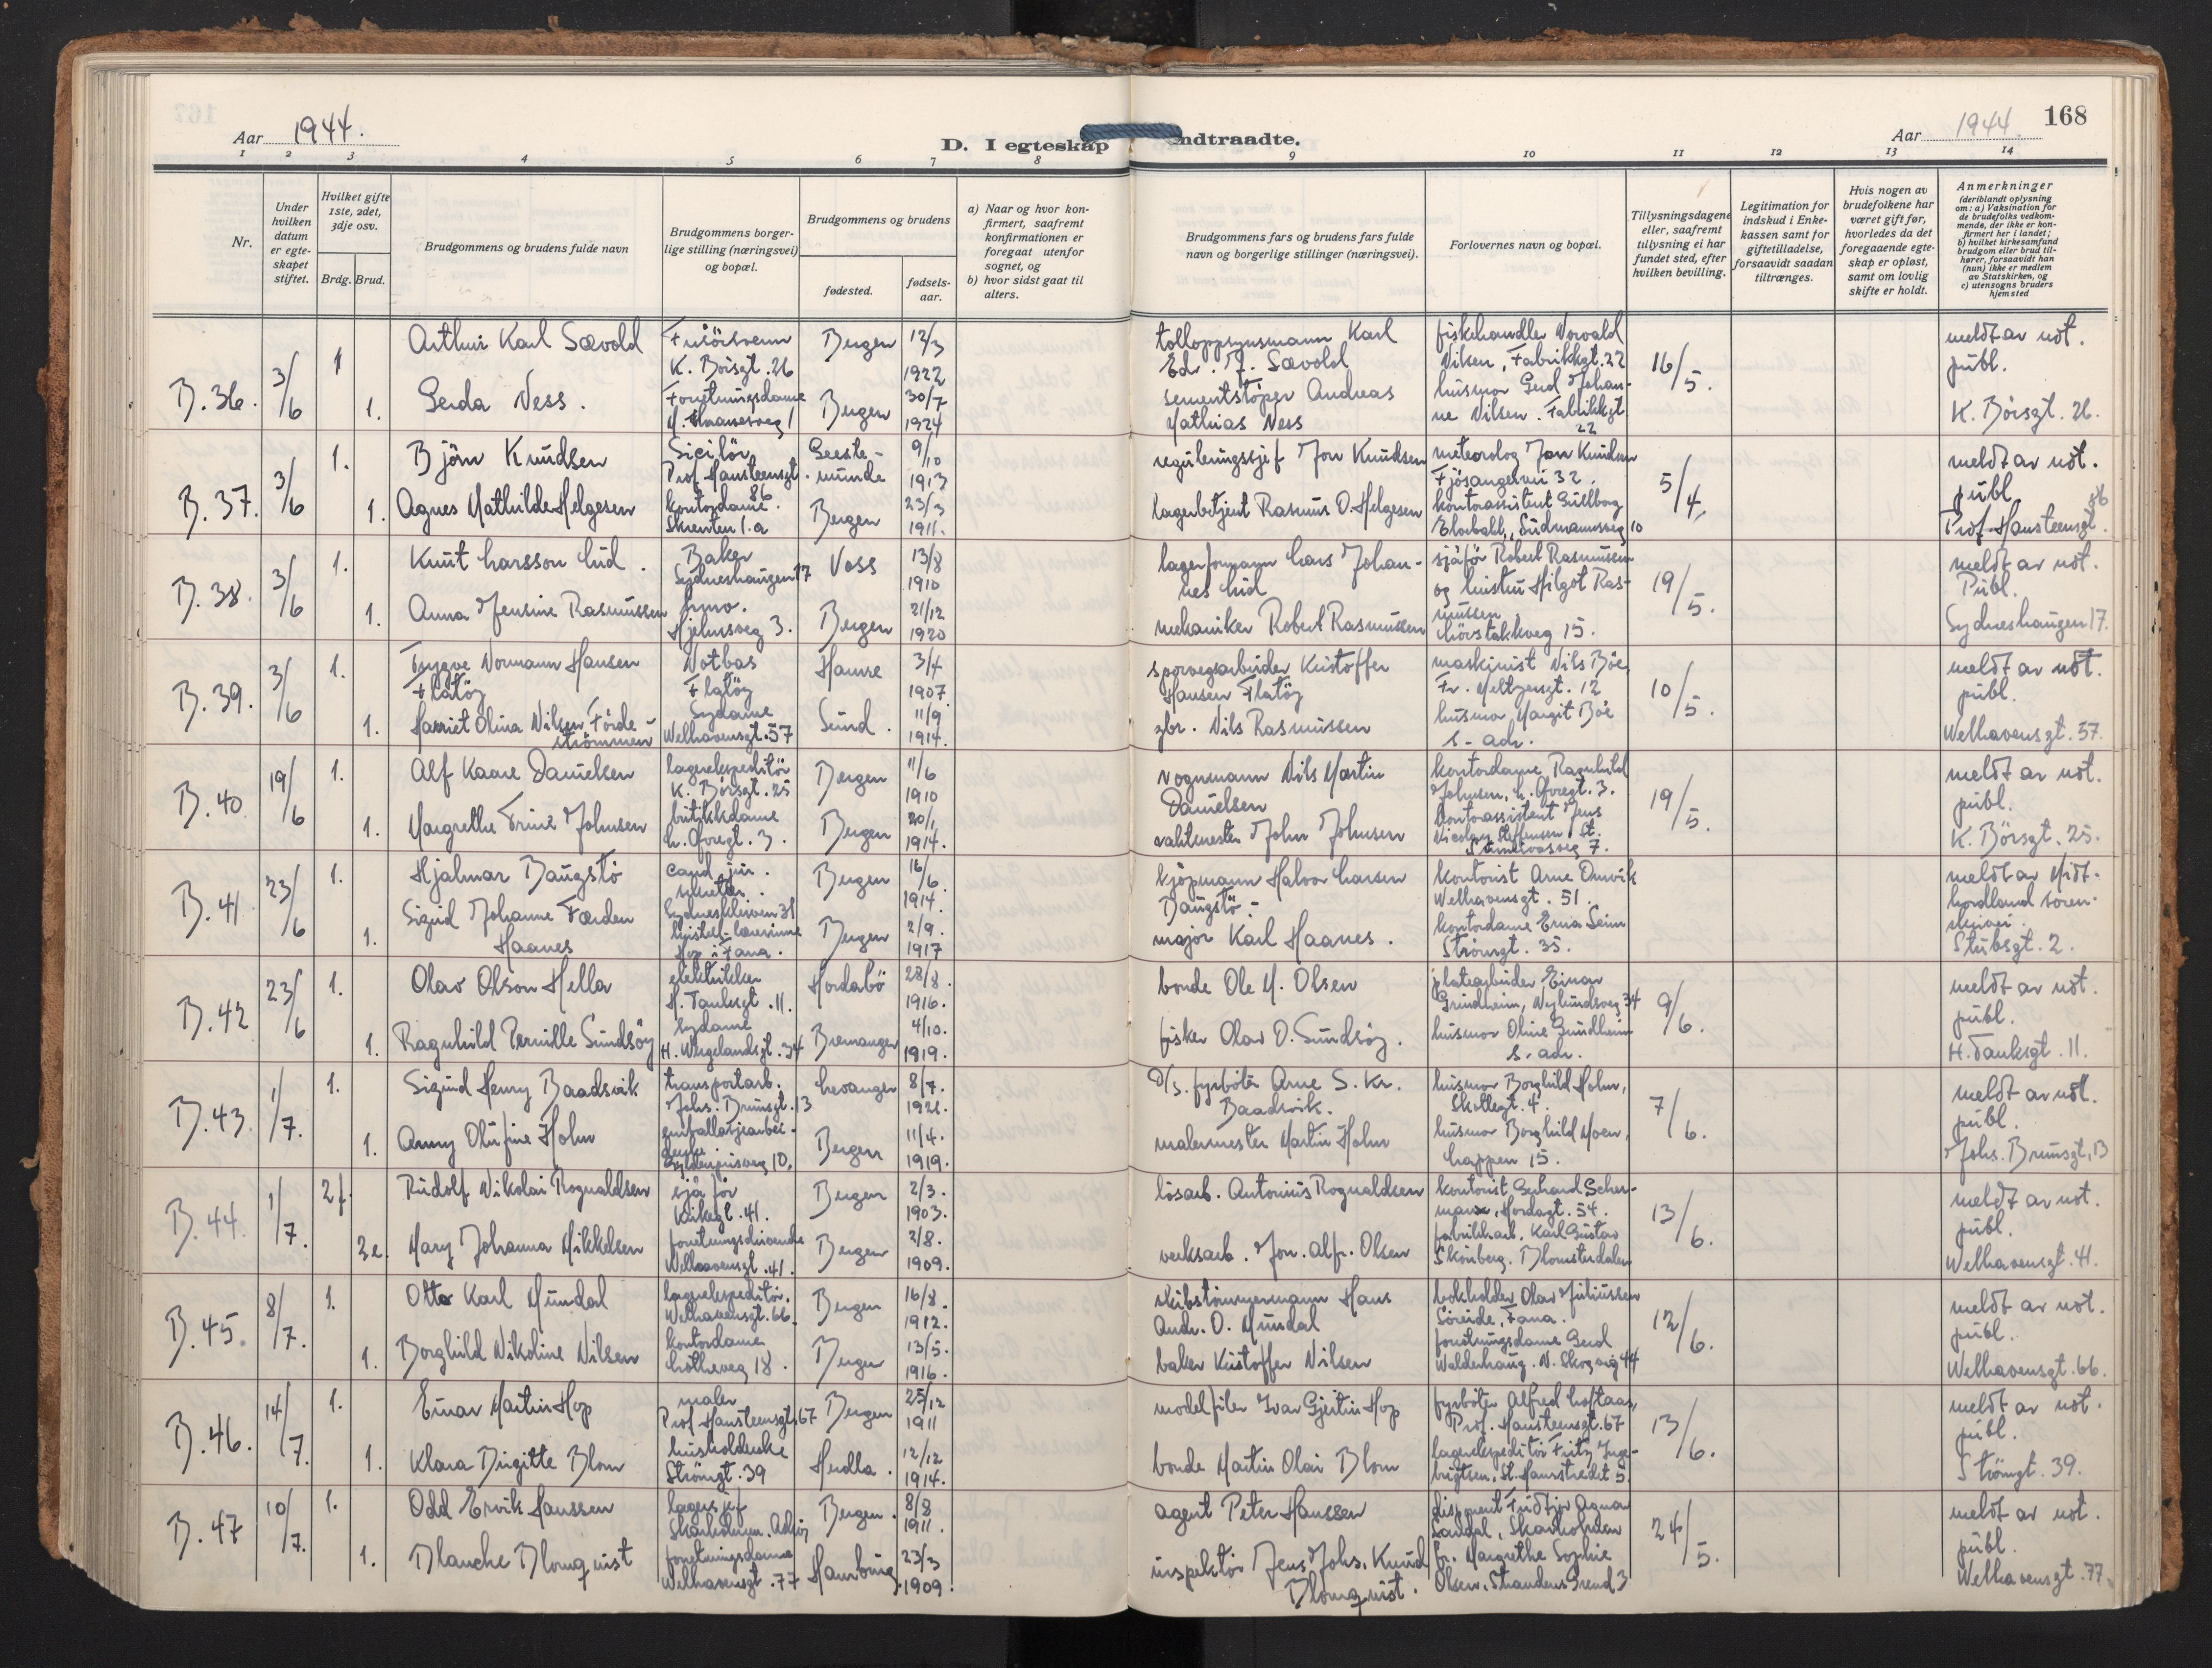 Aar 1944.
D. I egteskap indtraadte.
Aar 1944. 168
1 2 3 4 5 6 7 8 9 10 11 12 13 14
Nr.
Under hvilken datum er egteskapet stiftet.
Hvilket gifte 1ste, 2det, 3dje osv.
Brdg. Brud.
Brudgommens og brudens fulde navn
Brudgommens borgerlige stilling (næringsvei) og bopæl.
Brudgommens og brudens
fødested.
fødsels-aar.
a) Naar og hvor konfirmert, saafremt konfirmationen er foregaat utenfor sognet, og
b) hvor sidst gaat til alters.
Brudgommens fars og brudens fars fulde navn og borgerlige stillinger (næringsvei).
Forlovernes navn og bopæl.
Tillysningsdagene eller, saafremt tilysning ei har fundet sted, efter hvilken bevilling.
Legitimation for indskud i Enkekassen samt for giftetilladelse, forsaavidt saadan tiltrænges.
Hvis nogen av brudefolkene har været gift før, hvorledes da det foregaaende egteskap er opløst, samt om lovlig skifte er holdt.
Anmerkninger (deriblandt oplysning om: a) Vaksination for de brudefolks vedkommende, der ikke er konfirmert her i landet; b) hvilket kirkesamfund brudgom eller brud tilhører, forsaavidt han (hun) ikke er medlem av Statskirken, og c) utensogns bruders hjemsted
B.36. 3/6 1 Arthur Karl Sævold
Frisörsvenn K. Börsgt. 26
Bergen 12/3 1922
tolloppsynsmann Karl Edv. J. Sævold
fiskehandler Norvald Nilsen, Fabrikkgt. 22
16/5.
meldt av not. publ. K. Börsgt. 26.
1. Gerda Ness.
Forretningsdame
Bergen 30/7 1924
sementstöper Andreas Mathias Ness
husmor Gerd Johanne Nilsen. Fabrikkgt 22
B.37. 3/6 1. Björn Knudsen
Prof. Hansteensgt. 86.
Geestemünde 9/10 1913
reguleringssjef Jon Knudsen
meteorolog Jon Knudsen Fjösangerveien 32.
5/4.
meldt av not. publ. Prof. Hansteensgt. 86
1. Agnes Mathilde Helgesen
kontordame. Skrenten 1.a
Bergen 23/3 1911.
lagerbetjent Rasmus O. Helgesen
kontorassistent
B.38. 3/6 1. Knut Larsson Lid.
Baker Sydneshaugen 17
Voss 13/8 1910
lagerformann Lars Johannes Lid
sjåför Robert Rasmussen og hustru Hilgot Rasmussen Lövstakkveg 15.
19/5.
meldt av not. Publ. Sydneshaugen 17.
1. Anna Jensine Rasmussen
hmv. Hjelmsveg 3.
Bergen 21/12 1920
mekaniker Robert Rasmussen
B.39. 3/6 1. Trygve Normann Hansen Flatöy
Notbas Flatöy
Hamre 3/4 1907.
sporvegsarbeider Kristoffer Hansen Flatöy
maskinist Nils Böe, Fr. Meltzersgt. 12
10/5.
meldt av not. publ. Welhavensgt. 57.
1. Harriet Olina Nilsen Fördeströmmen
Sydame Welhavensgt. 57
Sund. 11/9 1914.
gbr. Nils Rasmussen
husmor Margit Böe s. adr.
B.40. 19/6 1. Alf Kaare Danielsen
lagerekspeditör K. Börsgt. 25
Bergen 11/6 1910
vognmann Nils Martin Danielsen
kontordame Ragnhild Johnsen, L. Övregt. 3.
19/5.
meldt av not. publ. K. Börsgt. 25.
1. Margrethe Trine Johnsen
butikkdame L. Övregt. 3.
Bergen 20/1 1914.
vaktmester John Johnsen
kontorassistent Jens Nicolay Steffensen
B.41. 23/6 1. Hjalmar Baugstö
cand. jur.
Bergen 16/6 1914.
kjöpmann Halvor Larsen Baugstö
kontorist Arne Welhavensgt. 51.
meldt av Midthordland sorenskriveri. Stubsgt. 2.
1. Sigrid Johanne Færden Haanes
Hop i Fana.
Bergen 2/9. 1917
major Karl Haanes.
kontordame Erna Seim Strömgt. 35.
B.42 23/6 1. Olav Olson Hella
elektriker H. Tanksgt. 11.
Hordabö 28/8. 1916.
bonde Ole M. Olsen
platearbeider Einar Grindheim, Nylundsveg 34
9/6.
meldt av not. publ. H. Tanksgt. 11.
1. Ragnhild Pernille Sundsöy
Sydame H. Wergelandsgt. 34
Bremanger 4/10. 1919.
fisker Olav O. Sundsöy.
husmor Oline Grindheim s. adr.
B.43. 1/7. 1. Sigurd Henry Baadsvik
transportarb. Johs. Brunsgt. 13
Levanger 8/7. 1921.
D/S. fyrböter Arne S. Kr. Baadsvik.
husmor Borghild Holm, Skottegt. 4.
7/6.
meldt av not. publ. Johs. Brunsgt. 13
1. Anny Olufine Holm
emballasjearbeiderske
Bergen 11/4. 1919.
malermester Martin Holm
husmor Borghild Moen, Lappen 15.
B.44. 1/7. 2 f. Rudolf Nikolai Rognaldsen
sjåför Kirkegt. 41.
Bergen 2/3. 1903.
lösarb. Antonius Rognaldsen
kontorist Gerhard Schermann, Hordagt. 54.
13/6.
meldt av not. publ. Welhavensgt. 41.
2 e. Mary Johanna Mikkelsen
forretningsdrivende Welhavensgt. 41.
Bergen 2/8. 1909.
verksarb. Jon. Alfr. Olsen
fabrikkarb. Karl Gustav Skönberg. Blomsterdalen
B.45. 8/7. 1. Otto Karl Mundal
lagerekspeditör. Welhavensgt. 66.
Bergen 16/8. 1912.
skibstömmermann Hans Andr. O. Mundal
bokholder Olav Juliussen Söreide, Fana.
12/6.
meldt av not. publ. Welhavensgt. 66.
1. Borghild Nikoline Nilsen
kontordame Lotheveg 18.
Bergen 13/5. 1916.
baker Kristoffer Nilsen
forretningsdame Gerd Walderhaug. N. Skogveg 44
B.46. 14/7. 1. Einar Martin Hop
maler Prof. Hansteensgt. 67
Bergen 25/12 1911
modelfiler Ivar Gjertin Hop
fyrböter Alfred Loftaas, Prof. Hansteensgt. 67
13/6.
meldt av not. publ. Strömgt. 39.
1. Klara Birgitte Blom
husholderske Strömgt. 39
Herdla. 12/12 1914.
bonde Martin Olai Blom
lagerekspeditör Fritz Ingebrigtsen, St. Hansstredet 5.
B.47 10/7. 1. Odd Ervik Hanssen
lagersjef Skarholmen. Askøy
Bergen. 8/8 1911.
agent Peter Hanssen
disponent Fridtjov Agnar Sandal, Skarholmen
24/5.
meldt av not. publ. Welhavensgt. 77.
1. Blanche Blomqvist
forretningsdame Welhavensgt. 77
Hamburg. 23/3 1909.
inspektör Jens Johs. Knud Blomqvist.
fr. Margrethe Sophie Olsen. Strandens Grend 3